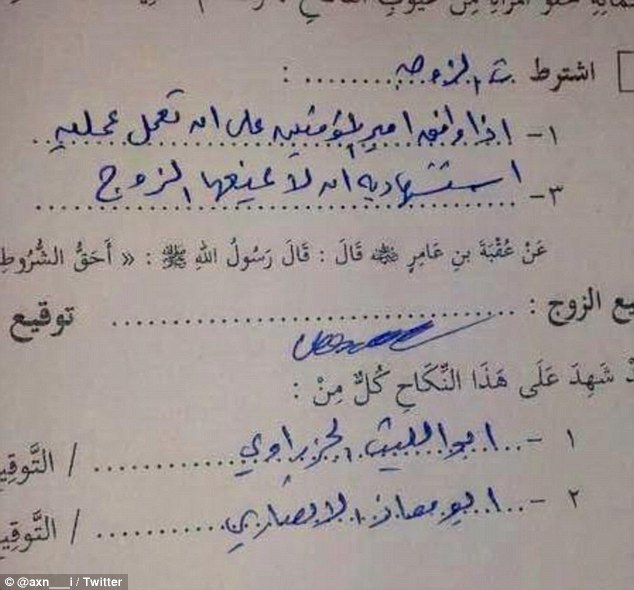 اشترطت الزوجه :
١- اذا وافق امير المؤمنين على ان تعمل عمليه
٣- استشهاديه ان لا يمنعها الزوج
عَنْ عُقْبَةَ بنِ عَامِرٍ ﷺ قَالَ : قَالَ رَسُولُ اللهِ ﷺ : « أَحَقُّ الشُّرُوطِ
يع الزوج : توقيع
شَهِدَ عَلَى هَذَا النِّكَاحِ كُلٌّ مِنْ :
١ - ابو الليث الجزراوي / التَّوقِيع
٢ - ابو معاذ الانصاري / التَّوقِيع
© @axn___i / Twitter